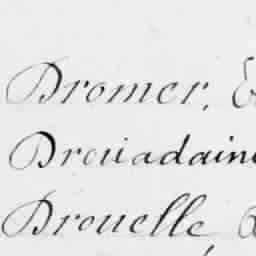 Dromer,
Drouadaine
Drouelle,